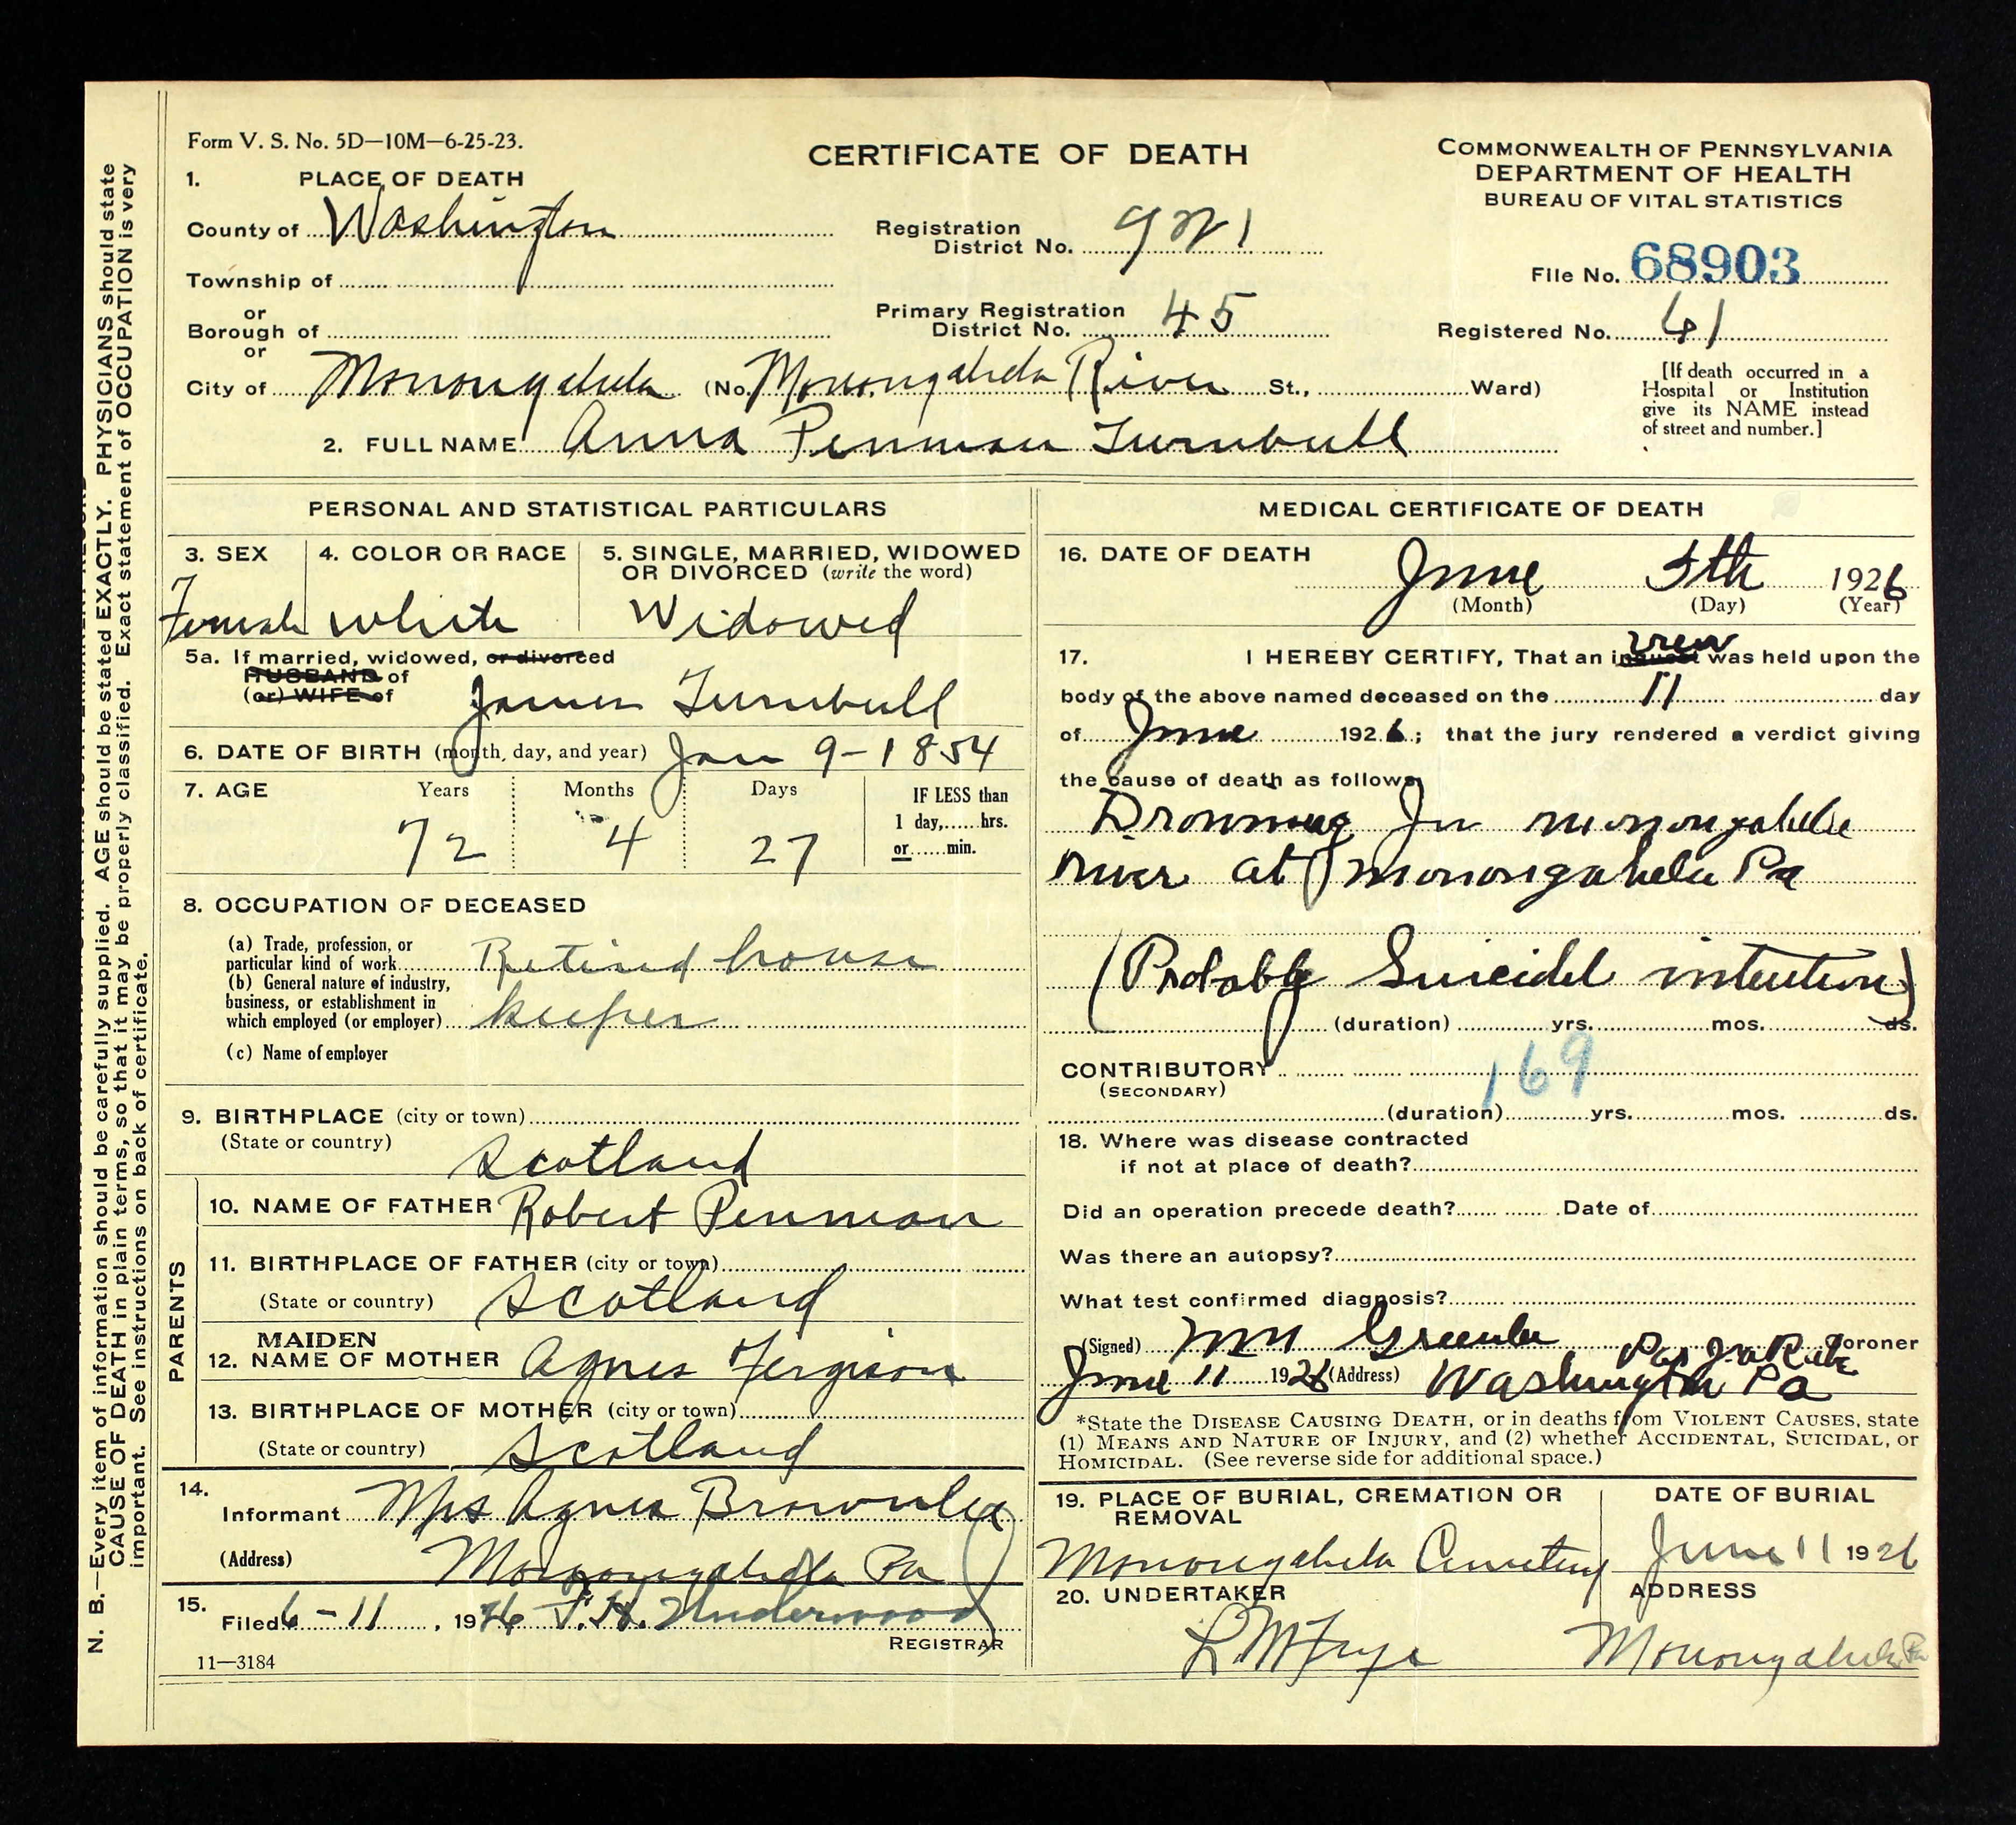 Form V. S. No. 5D—10M—6-25-23.
CERTIFICATE OF DEATH
COMMONWEALTH OF PENNSYLVANIA
DEPARTMENT OF HEALTH
BUREAU OF VITAL STATISTICS
1. PLACE OF DEATH
County of Washington
Registration
District No. 921
File No. 68903
Township of
or
Borough of
or
Primary Registration
District No. 45
Registered No. 41
City of Monongahela (No. Monongahela River St., Ward)
[If death occurred in a
Hospital or Institution
give its NAME instead
of street and number.]
2. FULL NAME Anna Penman Turnbull
PERSONAL AND STATISTICAL PARTICULARS
3. SEX
Female
4. COLOR OR RACE
White
5. SINGLE, MARRIED, WIDOWED
OR DIVORCED (write the word)
Widowed
5a. If married, widowed, or divorced
HUSBAND of
(or) WIFE of
James Turnbull
6. DATE OF BIRTH (month, day, and year) Jan 9-1854
7. AGE Years Months Days IF LESS than
1 day,......hrs.
or......min.
72 4 27
8. OCCUPATION OF DECEASED
(a) Trade, profession, or
particular kind of work Retired house
(b) General nature of industry,
business, or establishment in
which employed (or employer) keeper
(c) Name of employer
9. BIRTHPLACE (city or town)
(State or country)
Scotland
PARENTS
10. NAME OF FATHER Robert Penman
11. BIRTHPLACE OF FATHER (city or town)
(State or country) Scotland
MAIDEN
12. NAME OF MOTHER Agnes Ferguson
13. BIRTHPLACE OF MOTHER (city or town)
(State or country) Scotland
14.
Informant Mrs Agnes Brownlee
(Address) Monongahela Pa
15.
Filed 6-11, 1926 T. H. Underwood
REGISTRAR
11—3184
MEDICAL CERTIFICATE OF DEATH
16. DATE OF DEATH
June 5th 1926
(Month) (Day) (Year)
17. I HEREBY CERTIFY, That an inquest view was held upon the
body of the above named deceased on the 11 day
of June 1926; that the jury rendered a verdict giving
the cause of death as follows
Drowning In monongahela
river at monongahela Pa
(Probably Suicidel intention)
(duration) yrs. mos. ds.
CONTRIBUTORY
(SECONDARY)
169
(duration) yrs. mos. ds.
18. Where was disease contracted
if not at place of death?
Did an operation precede death? Date of
Was there an autopsy?
What test confirmed diagnosis?
(Signed) Coroner
June 11 1926 (Address) Washington Pa
*State the DISEASE CAUSING DEATH, or in deaths from VIOLENT CAUSES, state
(1) MEANS AND NATURE OF INJURY, and (2) whether ACCIDENTAL, SUICIDAL, or
HOMICIDAL. (See reverse side for additional space.)
19. PLACE OF BURIAL, CREMATION OR
REMOVAL
Monongahela Cemetery
DATE OF BURIAL
June 11 1926
20. UNDERTAKER
L M Frye
ADDRESS
Monongahela Pa
N. B.—Every item of information should be carefully supplied. AGE should be stated EXACTLY. PHYSICIANS should state
CAUSE OF DEATH in plain terms, so that it may be properly classified. Exact statement of OCCUPATION is very
important. See instructions on back of certificate.